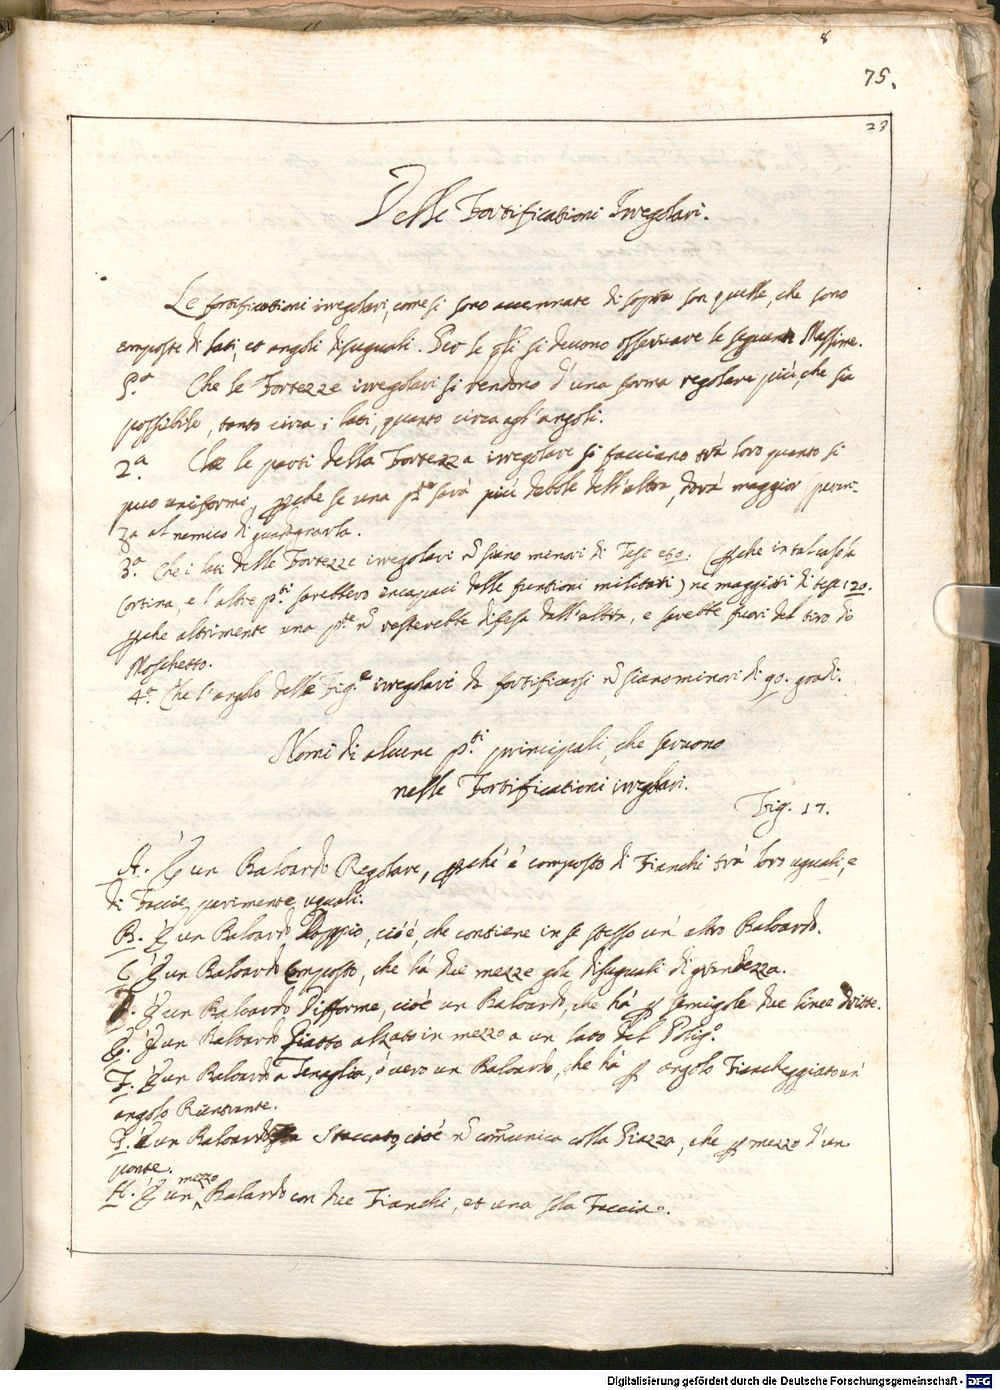 8
75.
23
Delle Fortificationi Irregolari.
Le fortificationi irregolari, come si sono accennate di sopra son quelle, che sono
composte di lati, et angoli disuguali. Per le qli si deuono osseruare le seguenti Massime.
P.a Che le Fortezze irregolari si rendono d'una forma regolare più, che sia
possibile, tanto circa i lati, quanto circa agl'angoli.
2.a Che le parti della Fortezza irregolare si facciano trà loro quanto si
puo uniformi, pche se una pte sarà più debole dell'altra, darà maggior
za al nemico di guadagnarla.
3.a Che i lati delle Fortezze irregolari nō siano menori di Tese 60: (pche in tal caso la
Cortina, e l'altre pti sarebbero incapaci delle funtioni militari) ne maggiori di tese 120.
pche altrimente una pte nō resterebbe difesa dall'altra, e sarebbe fuori del tiro di
Moschetto.
4.a Che l'angolo delle Fig.e irregolari da fortificarsi nō siano minori di 90. gradi.
Nomi di alcune pti principali, che seruono
nelle Fortificationi irregolari.
Fig. 17.
A. È un Baloardo Regolare, pchè è composto di Fianchi trà loro uguali, e
di Faccie parimente uguali.
B. È un Baloardo Doppio, cioè, che contiene in se stesso un'altro Baloardo.
C. È un Baloardo Composto, che hà due mezze gole disuguali di grandezza.
D. È un Baloardo difforme, cioè un Baloardo, che hà p semigole due linee dritte.
E. È un Baloardo Piatto alzato in mezzo a un lato del Polig.o
F. È un Baloardo a Tenaglia, ò uero un Baloardo, che hà p angolo Fiancheggiato un'
angolo Rientrante.
È un Baloardo Staccato, cioè nō comunica colla Piazza, che p mezzo d'un
ponte.
H. È un mezzo Baloardo con due Fianchi, et una sola Faccia.
Digitalisierung gefördert durch die Deutsche Forschungsgemeinschaft - DFG